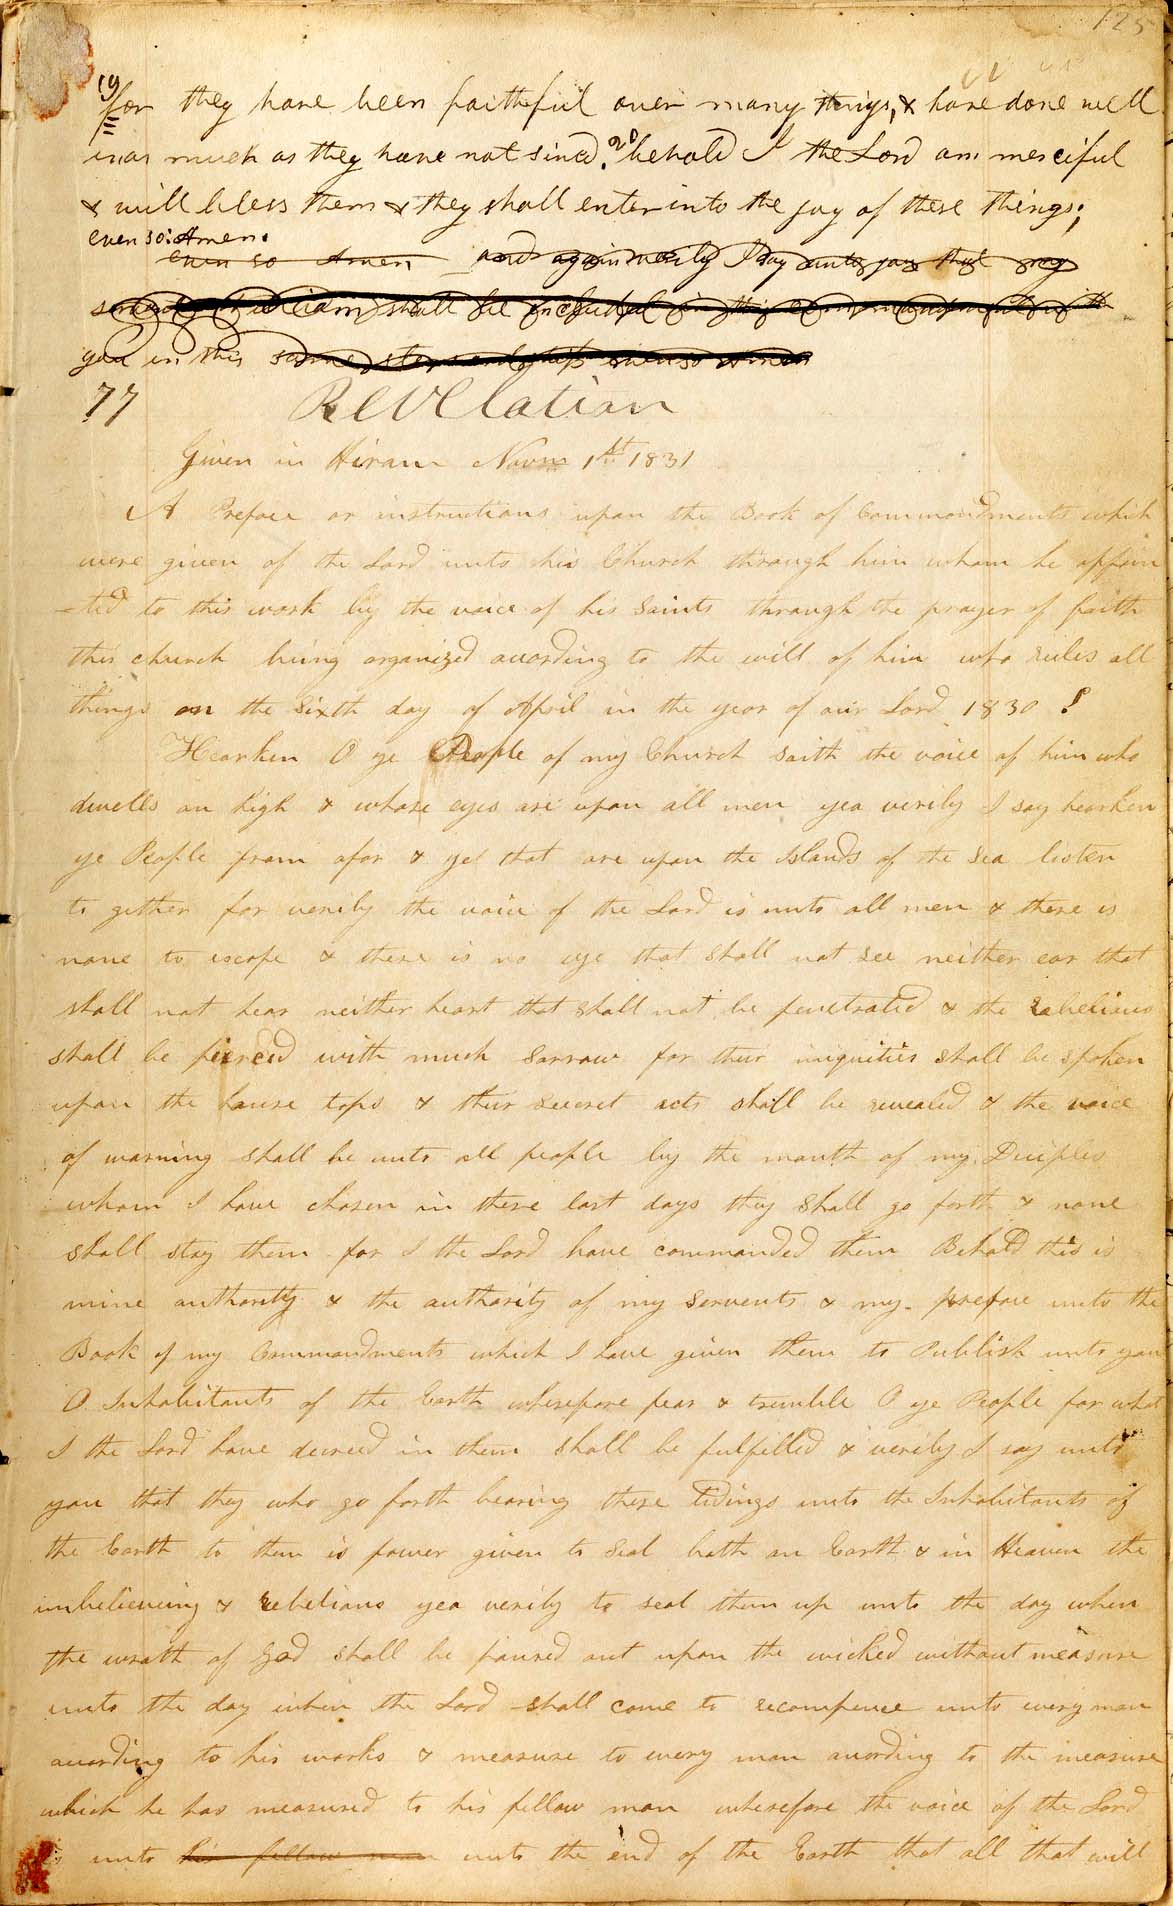 125
19 for they have been faithful over many things, & have done well
in as much as they have not sined. 20 behold I the Lord am merciful
& will bless them & they shall enter into the joy of these things;
even so: Amen.
even so Amen and again verily I say unto you that my
servant William shall be included in this commandment with
you in this same stewardship even so amen
77 Revelation
Given in Hiram Novm 1st 1831
A Preface or instructions upon the Book of Commandments which
were given of the Lord unto his Church through him whom he appoin
-ted to this work by the voice of his Saints through the prayer of faith
this church being organized acording to the will of him who rules all
things on the Sixth day of April in the year of our Lord 1830
Hearken O ye People of my Church saith the voice of him who
dwells on high & whose eyes are upon all men yea verily I say hearken
ye People from afar & ye that are upon the Islands of the Sea listen
to gether for verily the voice of the Lord is unto all men & there is
none to escape & there is no eye that shall not see neither ear that
shall not hear neither heart that shall not be penetrated & the rebelious
shall be pierced with much Sorrow for their iniquities shall be spoken
upon the house tops & their secret acts shall be revealed & the voice
of warning shall be unto all people by the mouth of my Deciples
whom I have chosen in these last days they shall go forth & none
shall stay them for I the Lord have commanded them Behold this is
mine authority & the authority of my Servents & my preface unto the
Book of my Commandments which I have given them to Publish unto you
O Inhabitants of the Earth wherefore fear & tremble O ye People for what
I the Lord have decreed in them shall be fulfilled & verily I say unto
you that they who go forth bearing these tidings unto the Inhabitants of
the Earth to them is power given to Seal both on Earth & in Heaven the
unbelieveing & rebelious yea verily to seal them up unto the day when
the wrath of God shall be poured out upon the wicked without measure
unto the day when the Lord shall come to recompence unto every man
acording to his works & measure to every man acording to the measure
which he has measured to his fellow man wherefore the voice of the Lord
is unto his fellow man unto the end of the Earth that all that will